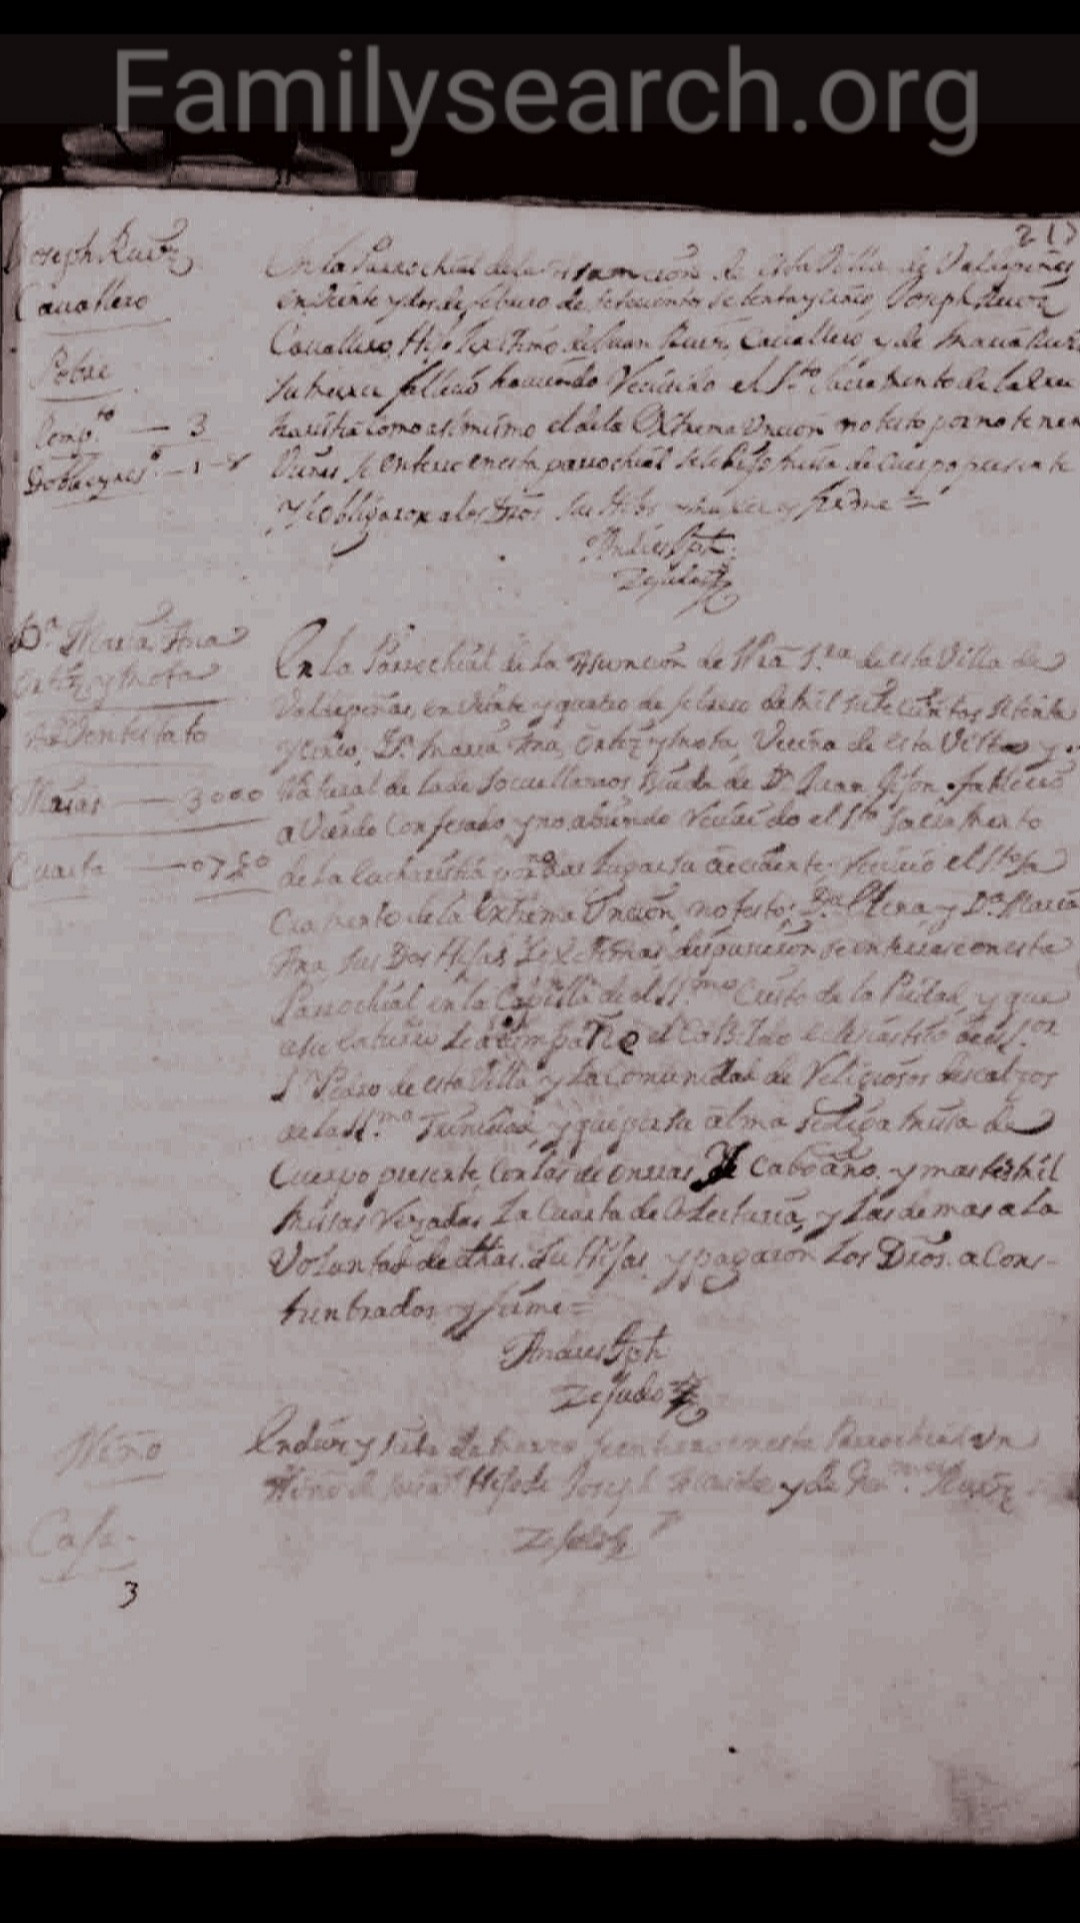 Familysearch.org
217
Joseph Ruiz
Cavallero
Pobre
Comp.to — 3
Doble y mes.s — 1-8
En la Parrochial de la Assumcion de esta Villa de Valdepeñas
en veinte y dos de febrero de setecientos setenta y cinco, Joseph Ruiz
Cavallero, Hijo Lextimo de Juan Ruiz Cavallero y de Maria Ruiz
su muxer fallecio haviendo Recivido el S.to Sacramento de la Eu
haristia como asi mismo el de la Extrema Uncion no testo por no tener
se enterro en esta parrochial se le dijo misa de cuerpo presente
y se obligaron a los Dros sus Hijos y firme =
Andres Jph
Zejudo
D.a Maria Ana
Ortiz y Mota
Abintestato
Misas — 3000
Cuarta — 0750
En la Parrochial de la Asuncion de Nra S.ra de esta Villa de
Valdepeñas, en veinte y quatro de febrero de mil setecientos setenta
y cinco, D.a Maria Ana Ortiz y Mota, Vecina de esta Villa y
Natural de la de Socuellamos Viuda de D.n Juan Gijon fallecio
aviendo Confesado y no abiendo Recivido el S.to Sacramento
de la Eucharistia por no dar lugar su accidente Recivio el S.to Sa
cramento de la Extrema Uncion, no testo; D.a Elena y D.a Maria
Ana sus Dos Hijas Lextimas dispusieron se enterrase en esta
Parrochial en la Capilla de el SS.mo Cristo de la Piedad, y que
a su entierro le acompañe el Cabildo Eclesiastico de el S.or
S.n Pedro de esta Villa y la Comunidad de Religiosos descalzos
de la SS.ma Trinidad, y que por su alma se diga misa de
Cuerpo presente, con las de onrras y Cabo año. y mas tres mil
misas Rezadas La Cuarta de Colecturia, y las demas a la
Voluntad de dhas. su Hijas y pagaron Los Dros. a Cons-
tumbrados y firme =
Andres Jph
Zejudo
Niño
Caf.
3
En diez y siete de marzo se enterro en esta Parrochial un
Niño de Hijo de Joseph y de Ruiz
Zejudo